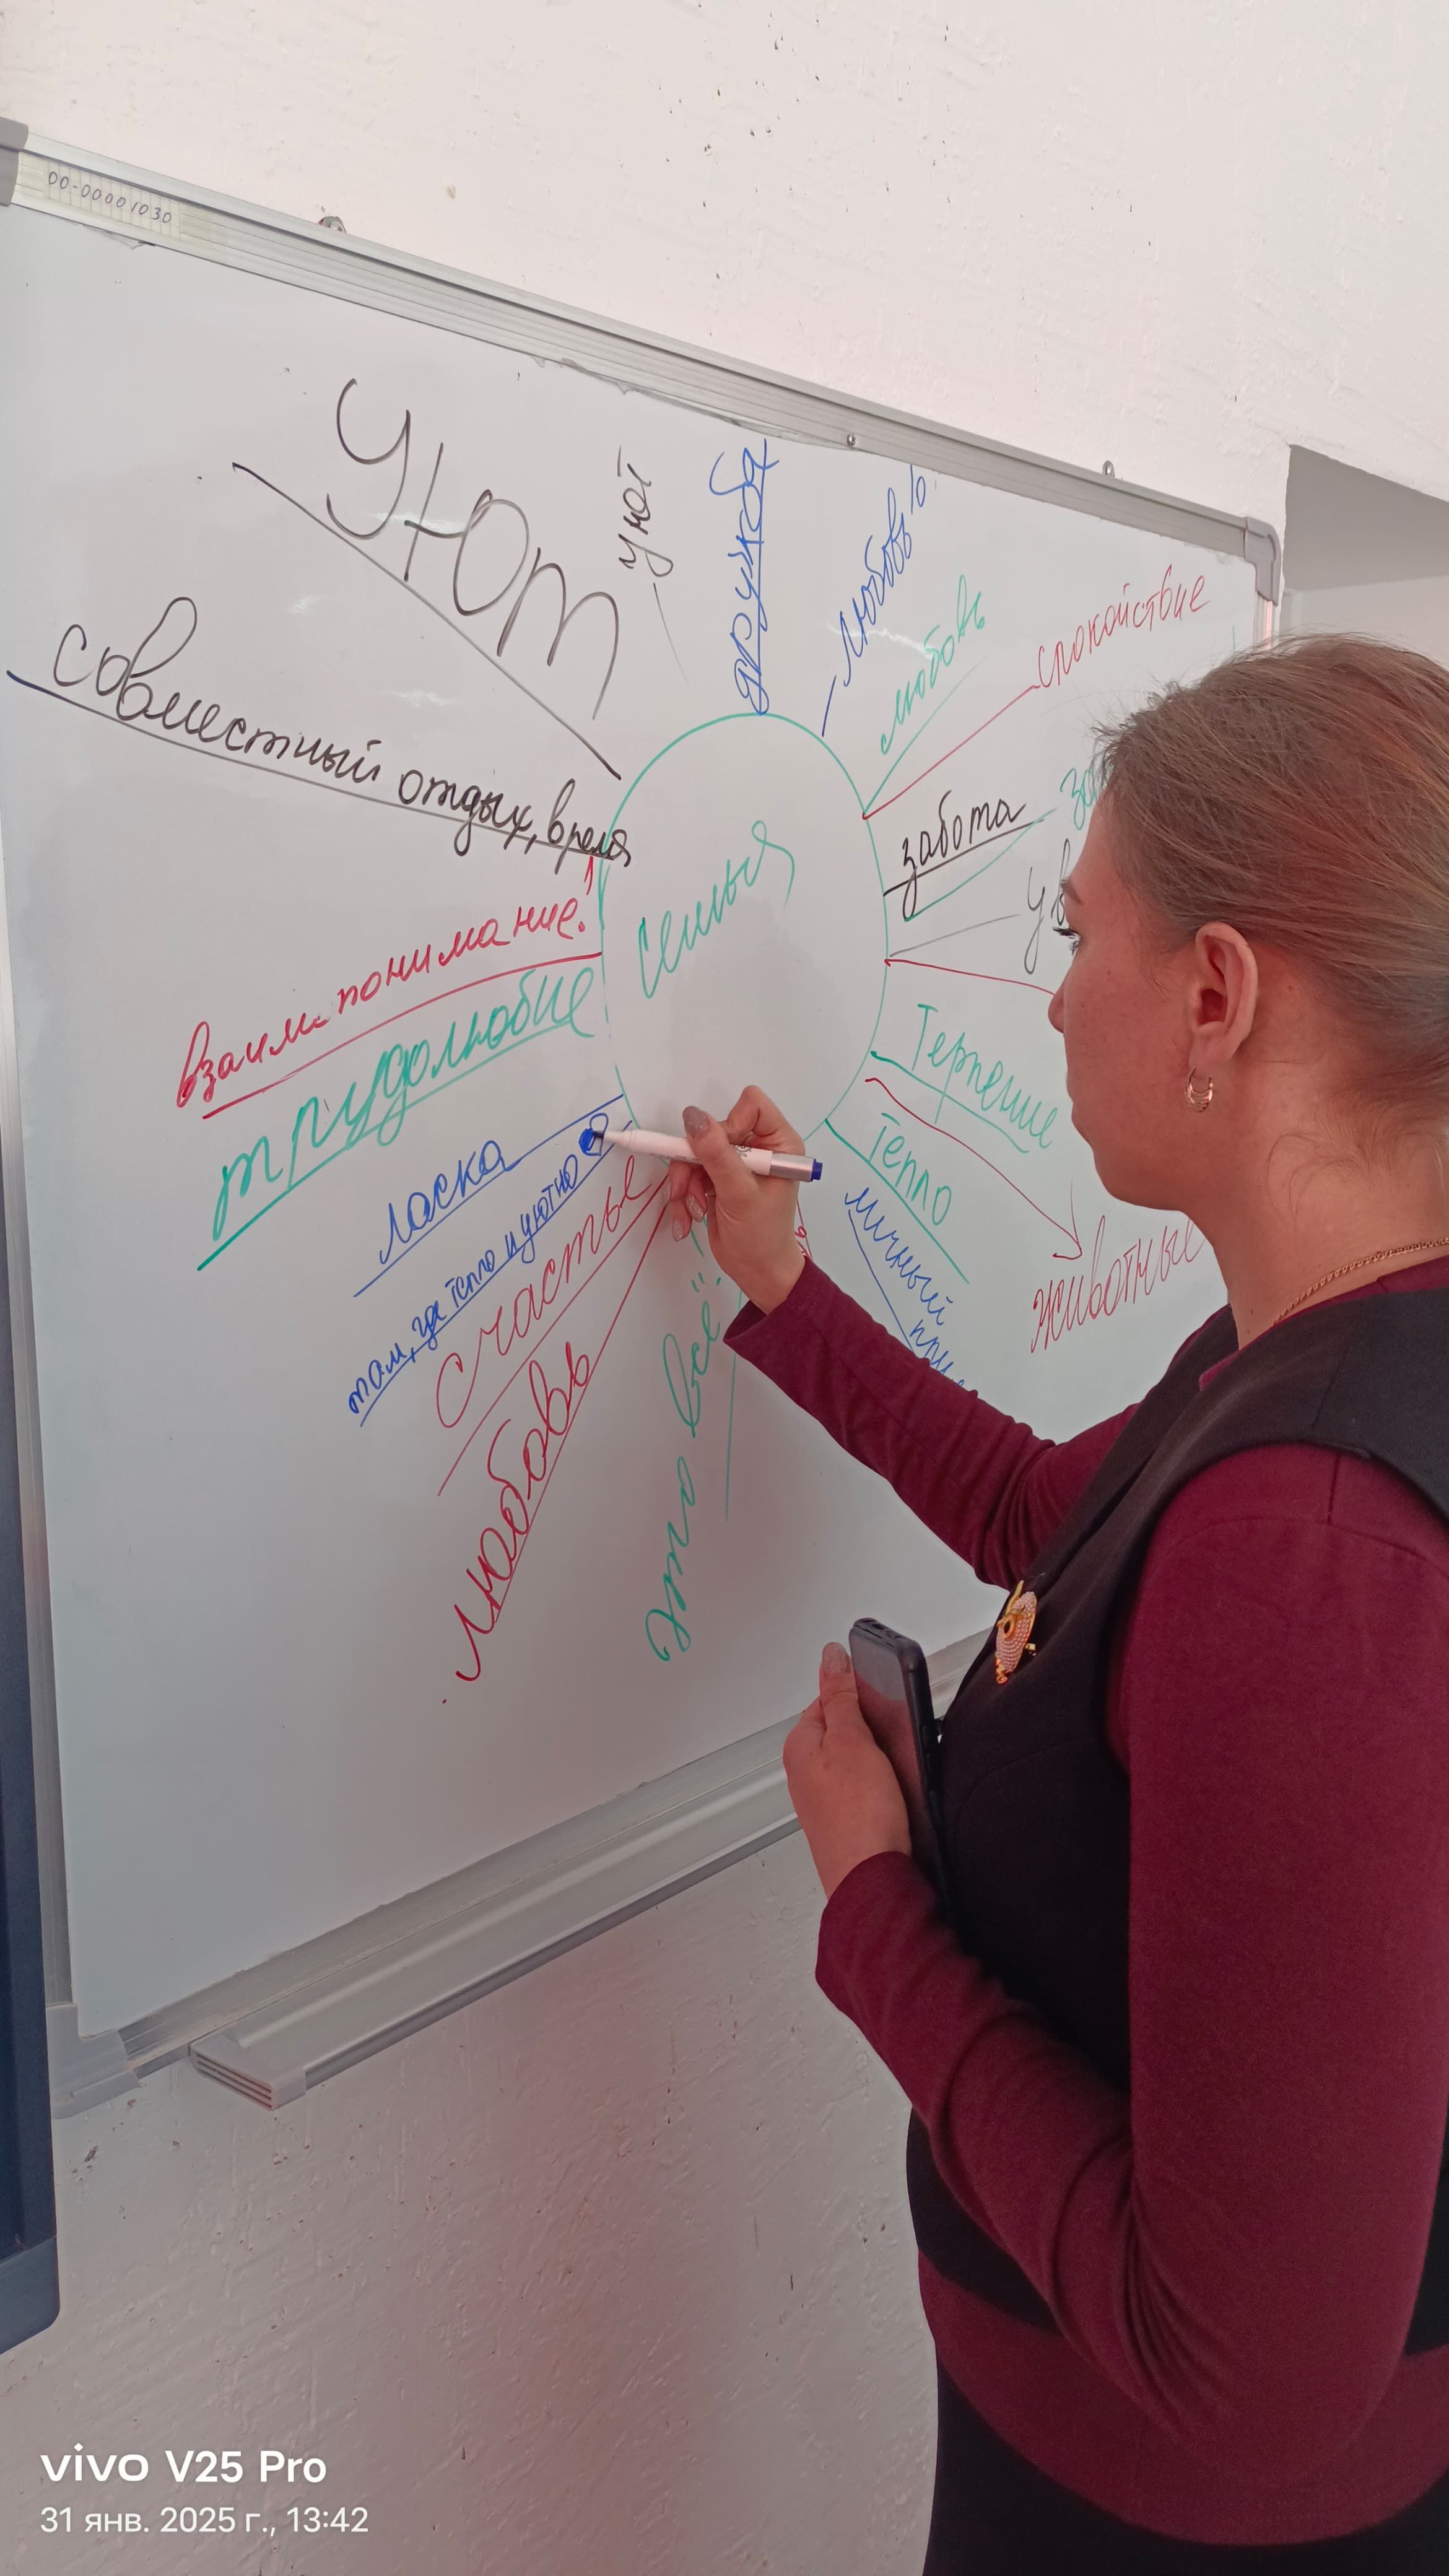 00-00001030
уют
уют
дружба
любовь!
любовь
спокойствие
совместный отдых, время
забота
семья
взаимопонимание!
трудолюбие
Терпение
Тепло
ласка
там, где тепло и уютно
счастье
личный
животные
любовь
это всё
vivo V25 Pro
31 янв. 2025 г., 13:42